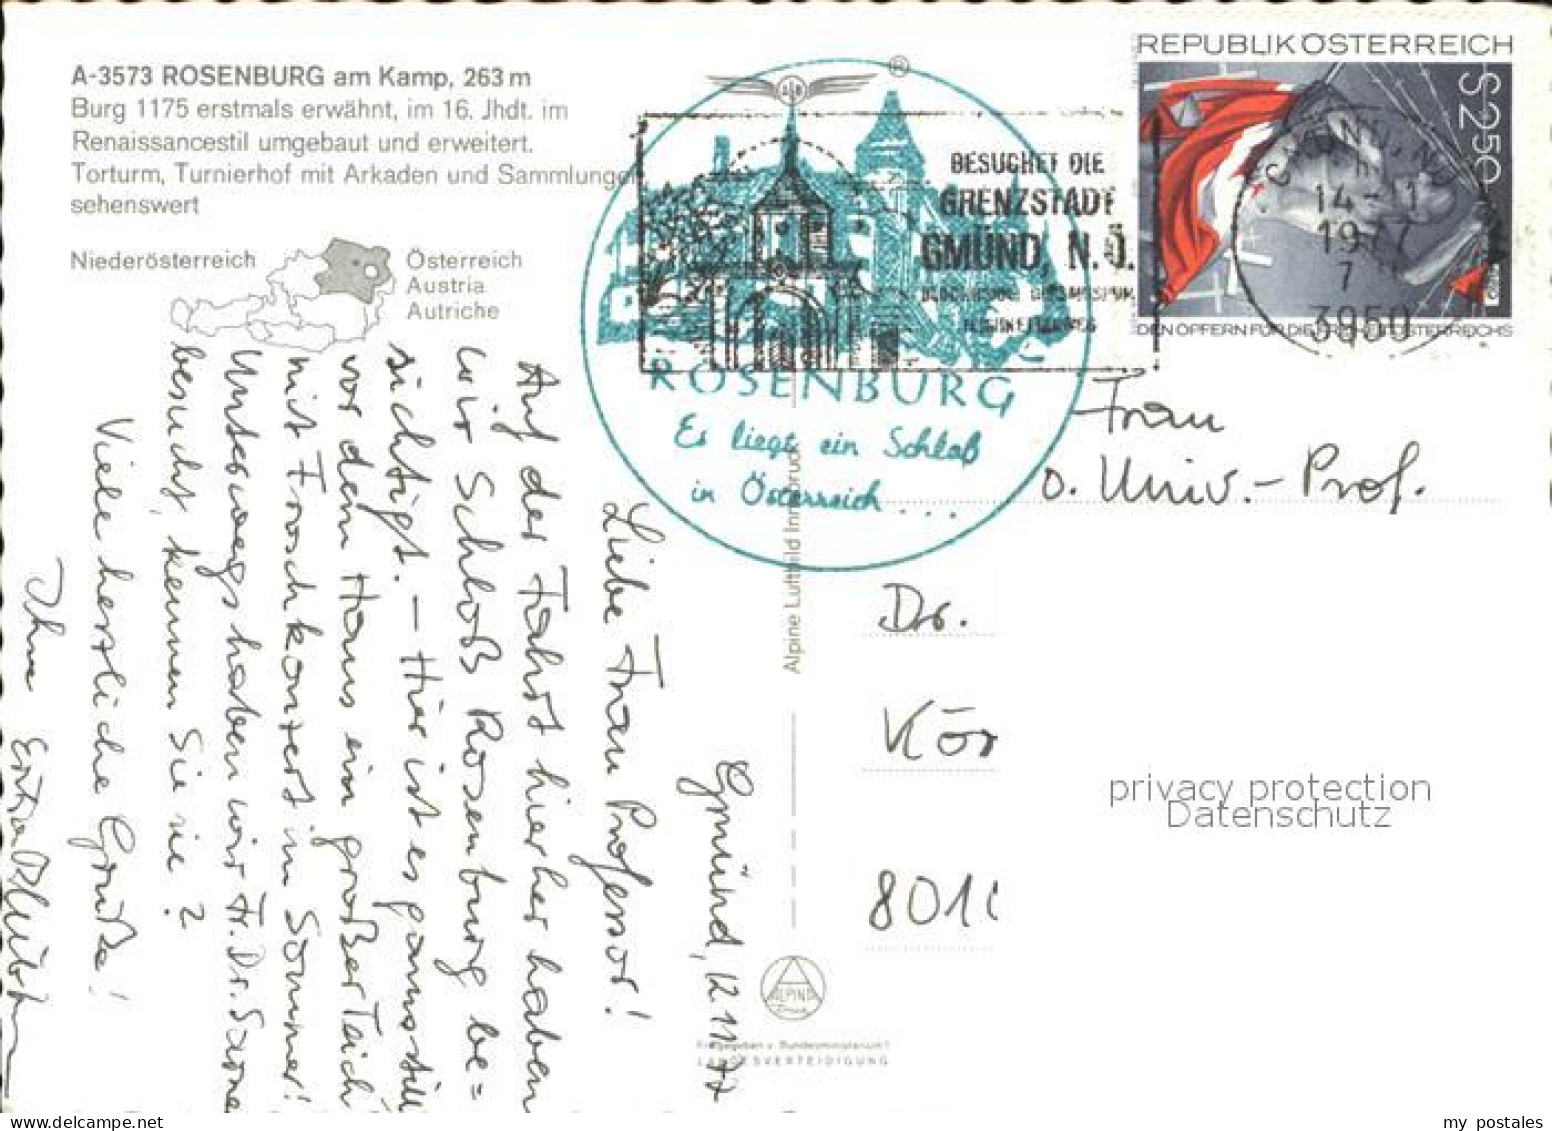 A-3573 ROSENBURG am Kamp, 263 m
Burg 1175 erstmals erwähnt, im 16. Jhdt. im
Renaissancestil umgebaut und erweitert.
Torturm, Turnierhof mit Arkaden und Sammlungen
sehenswert
Niederösterreich
Österreich
Austria
Autriche
®
BESUCHET DIE
GRENZSTADT
GMÜND, N.Ö.
ROSENBURG
Es liegt ein Schloß
in Österreich...
REPUBLIK ÖSTERREICH
S 2.50
DEN OPFERN FÜR DIE FREIHEIT ÖSTERREICHS
GMÜND, NÖ
14-11
1977
7
3950
Gmünd, 12.11.77
Liebe Frau Professor!
Auf der Fahrt hierher haben
wir Schloß Rosenburg be=
sichtigt. – Hier ist es ganz still
vor dem Haus ein großer Teich
mit Froschkonzert im Sommer!
Unterwegs haben wir Fr. Dr.
besucht, kennen Sie sie?
Viele herzliche Grüße!
Ihre
Frau
o. Univ.-Prof.
Dr.
Kör
801
Alpine Luftbild Innsbruck
ALPINE
Freigegeben v. Bundesministerium f.
LANDESVERTEIDIGUNG
privacy protection
Datenschutz
my postales